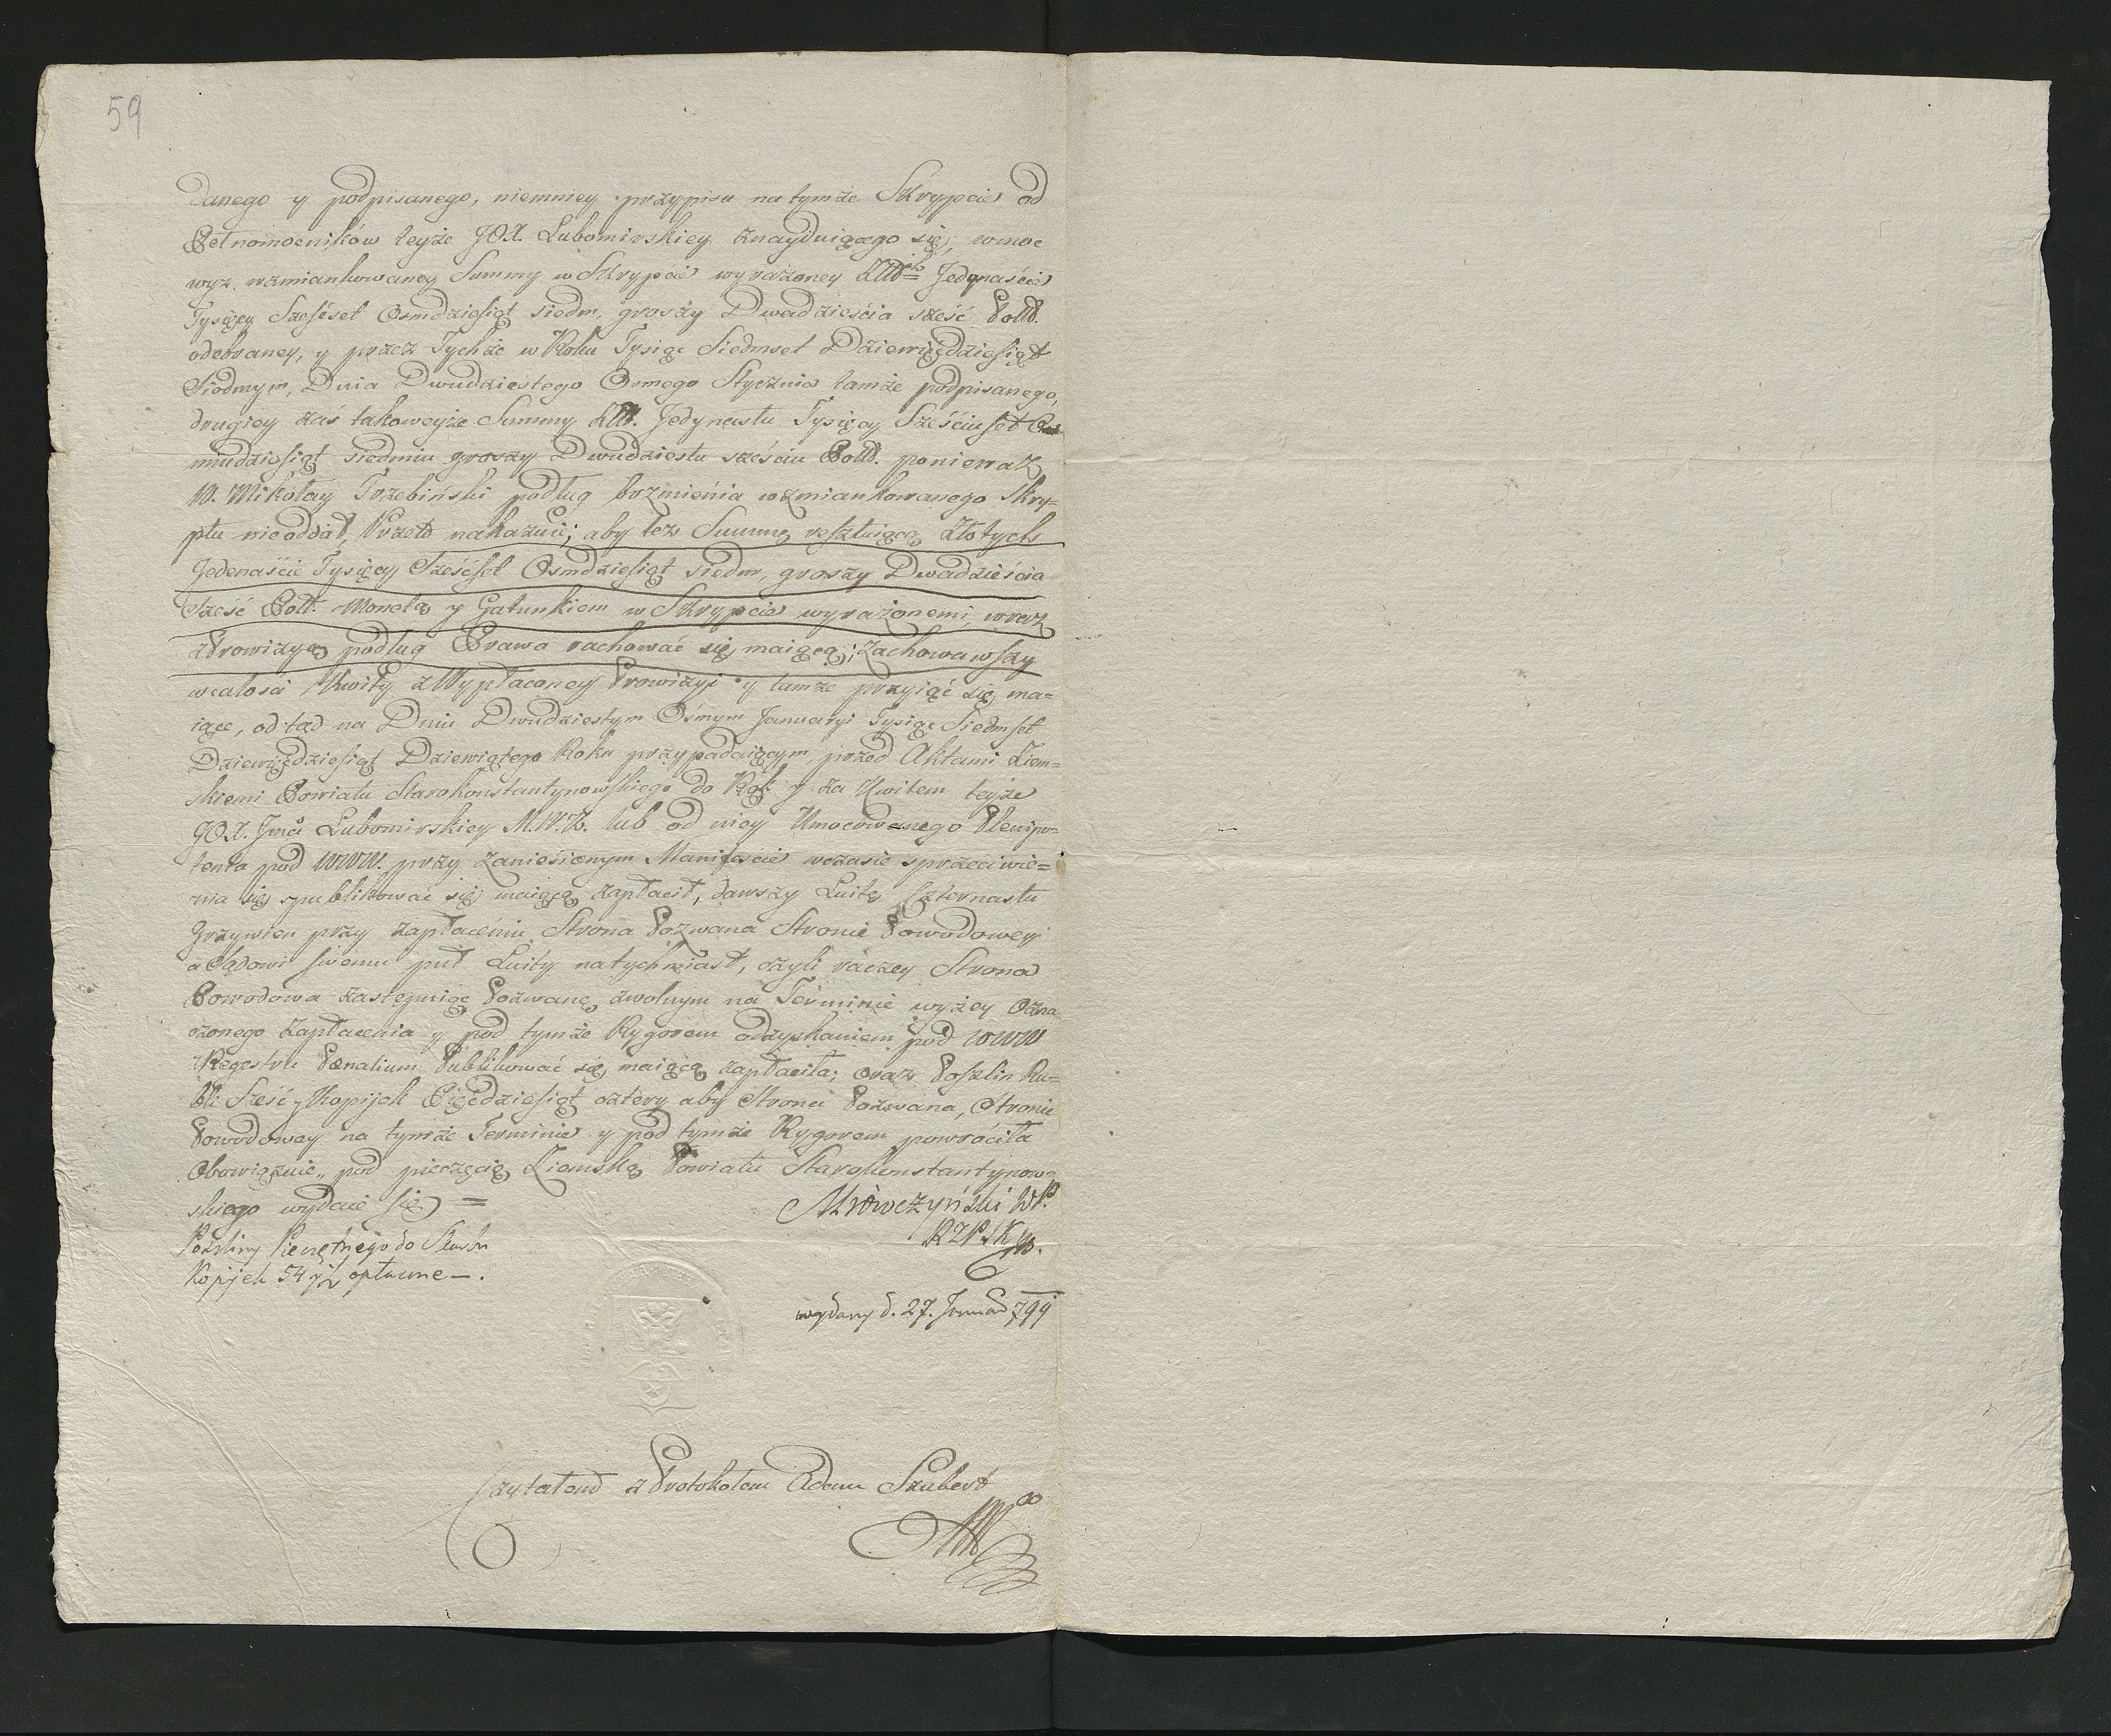 59
Danego y podpisanego, niemniey przypisu na tymże Skrypcie od
Pełnomocników teyże JOX. Lubomirskiey znayduiącego się, wmoc
wyż wzmiankowaney Summy w Skrypcie wyrażoney Jedynaście
Tysięcy Sześćset Osmdziesiąt siedm, groszy Dwadzieścia sześć
odebraney, y przez Tychże w Roku Tysiąc Siedmset Dziewięćdziesiąt
Siodmym, Dnia Dwudziestego Osmego Stycznia tamże podpisanego,
drugiey zaś takoweyże Summy Jedynastu Tysięcy Sześciuset Os-
miudziesiąt siedmiu groszy Dwudziestu sześciu ponieważ
W. Mikołay Trzebiński podług brzmienia wzmiankowanego Skry=
ptu nieoddał, Przeto nakazuie; aby też Summę resztuiącą Złotych
Jedenaście Tysięcy Sześćset Osmdziesiąt siedm, groszy Dwadzieścia
Sześć Poll. Monetą y Gatunkiem w Skrypcie wyrażonemi, wraz
z Prowizyą podług Prawa rachować się maiącą; zachowawszy
wcałości Kwity z Wypłaconey Prowizyi y tamże przyiąć się ma=
iące, od tąd na Dniu Dwudziestym Osmym Januaryi Tysiąc Siedmset
Dziewięćdziesiąt Dziewiątego Roku przypadaiącym, przed Aktami Ziem=
skiemi Powiatu Starokonstantynowskiego do Rąk y za Kwitem teyże
JOX. Jmci Lubomirskiey M.W.K. lub od niey Umocowanego Plenipo=
tenta pod WWW. przy zaniesionym Manifeście wczasie sprzeciwie=
nia się, spublikować się maiącą zapłacił, dawszy Luitę Czternastu
Grzywien przy zapłaceniu Strona Pozwana Stronie Powodowey
a Sądowi swemu puł Luity natychmiast, czyli raczey Strona
Powodowa zastępuiąc Pozwaną zwolnym na Terminie wyżey Ozna
czonego zapłacenia y pod tymże Rygorem odzyskaniem pod WWW
z Regestru Pœnalium Publikować się maiącą zapłaciła; oraz Poszlin Ru=
bli Sześć y Kopijek Pięćdziesiąt cztery aby Strona Pozwana, Stronie
Powodowey na tymże Terminie y pod tymże Rygorem powróciła
Obowiązuie,, pod pieczęcią Ziemską Powiatu Starokonstantynow=
skiego wydaie się =
Mrówczyński
Poszliny Pieczętnego do Skarbu
Kopijek 54 y ½ opłacone —.
wydany d. 27. Januar 799
Czytałem z Protokołem Adam Szubert